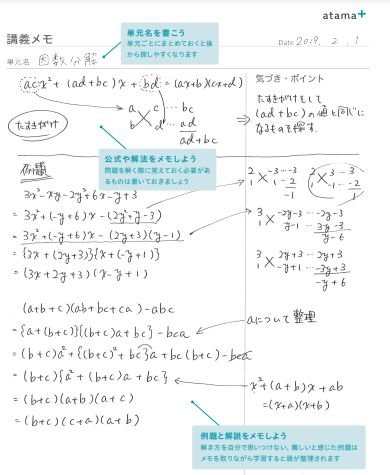 atama+
講義メモ
単元名を書こう
単元ごとにまとめておくと後
から探しやすくなります
Date 2019. 2. 1
単元名 因数分解
acx²+(ad+bc)x+bd=(ax+b)(cx+d)
たすきがけ
a c … bc
b d … ad
ad+bc
気づき・ポイント
たすきがけをして
(ad+bc)の値と同じに
なるものを探す.
公式や解法をメモしよう
問題を解く際に覚えておく必要が
あるものは書いておきましょう
例題
3x²-xy-2y²+6x-y+3
=3x²+(-y+6)x-(2y²+y-3)
=3x²+(-y+6)x-(2y+3)(y-1)
={3x+(2y+3)}{x+(-y+1)}
=(3x+2y+3)(x-y+1)
2 3 … 3
1 -1 … -2
3 -2y-3 … -2y-3
1 y-1 … 3y-3
y-6
3 2y+3 … 2y+3
1 -y+1 … -3y+3
-y+6
(a+b+c)(ab+bc+ca)-abc
={a+(b+c)}{(b+c)a+bc}-bca
=(b+c)a²+{(b+c)²+bc}a+bc(b+c)-bca
=(b+c){a²+(b+c)a+bc}
=(b+c)(a+b)(a+c)
=(b+c)(c+a)(a+b)
aについて整理
x²+(a+b)x+ab
=(x+a)(x+b)
例題と解説をメモしよう
解き方を自分で思いつけない、難しいと感じた例題は
メモを取りながら学習すると頭が整理されます